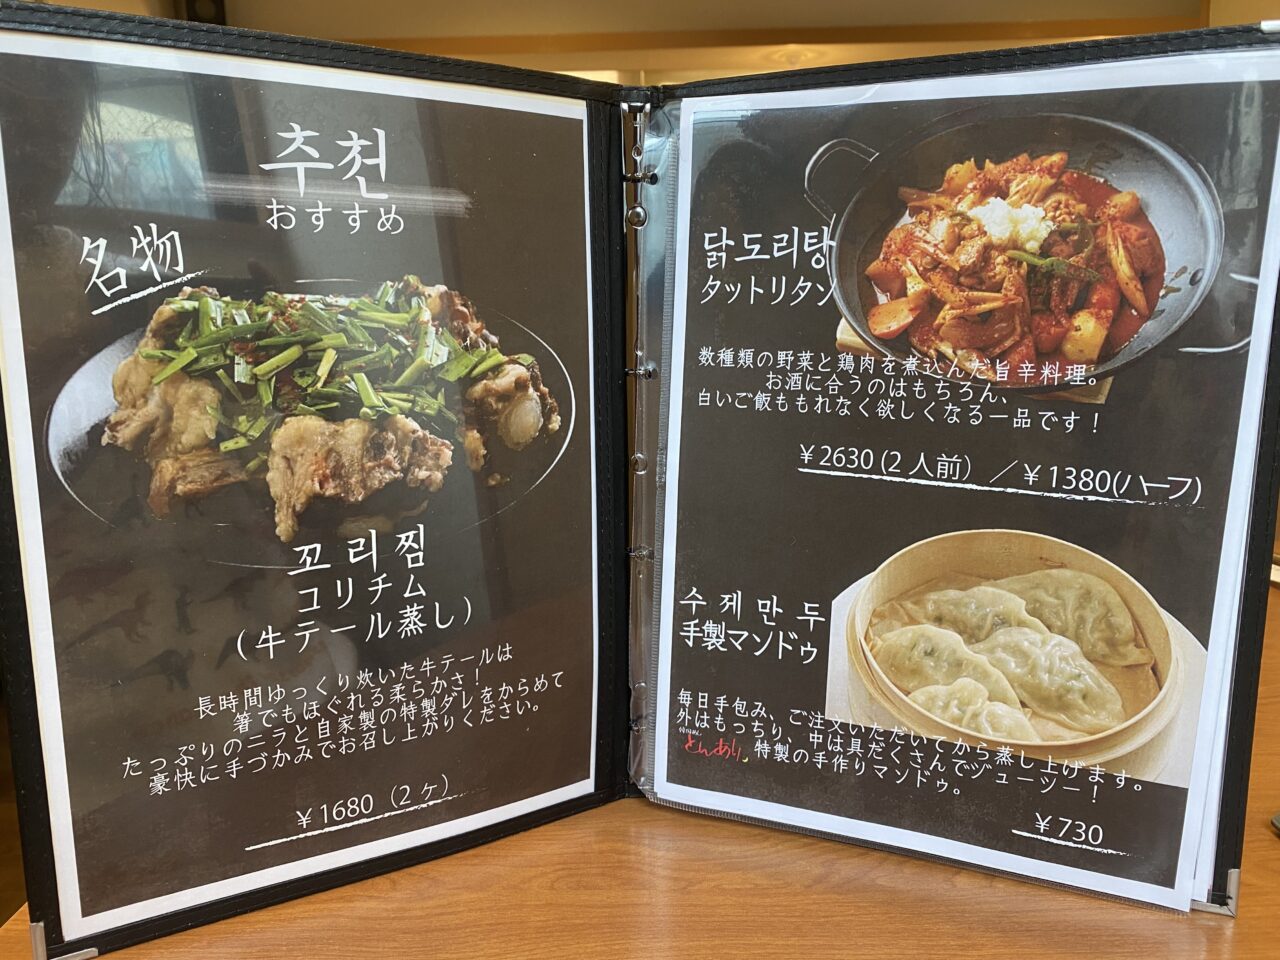 추천
おすすめ
名物
꼬리찜
コリチム
(牛テール蒸し)
長時間ゆっくり炊いた牛テールは
箸でもほぐれる柔らかさ！
たっぷりのニラと自家製の特製ダレをからめて
豪快に手づかみでお召し上がりください。
￥1680（2ヶ）
닭도리탕
タットリタン
数種類の野菜と鶏肉を煮込んだ旨辛料理。
お酒に合うのはもちろん、
白いご飯ももれなく欲しくなる一品です！
￥2630(2人前）／￥1380(ハーフ)
수제만두
手製マンドゥ
毎日手包み、ご注文いただいてから蒸し上げます。
外はもっちり、中は具だくさんでジューシー！
とんあり。特製の手作りマンドゥ。
￥730